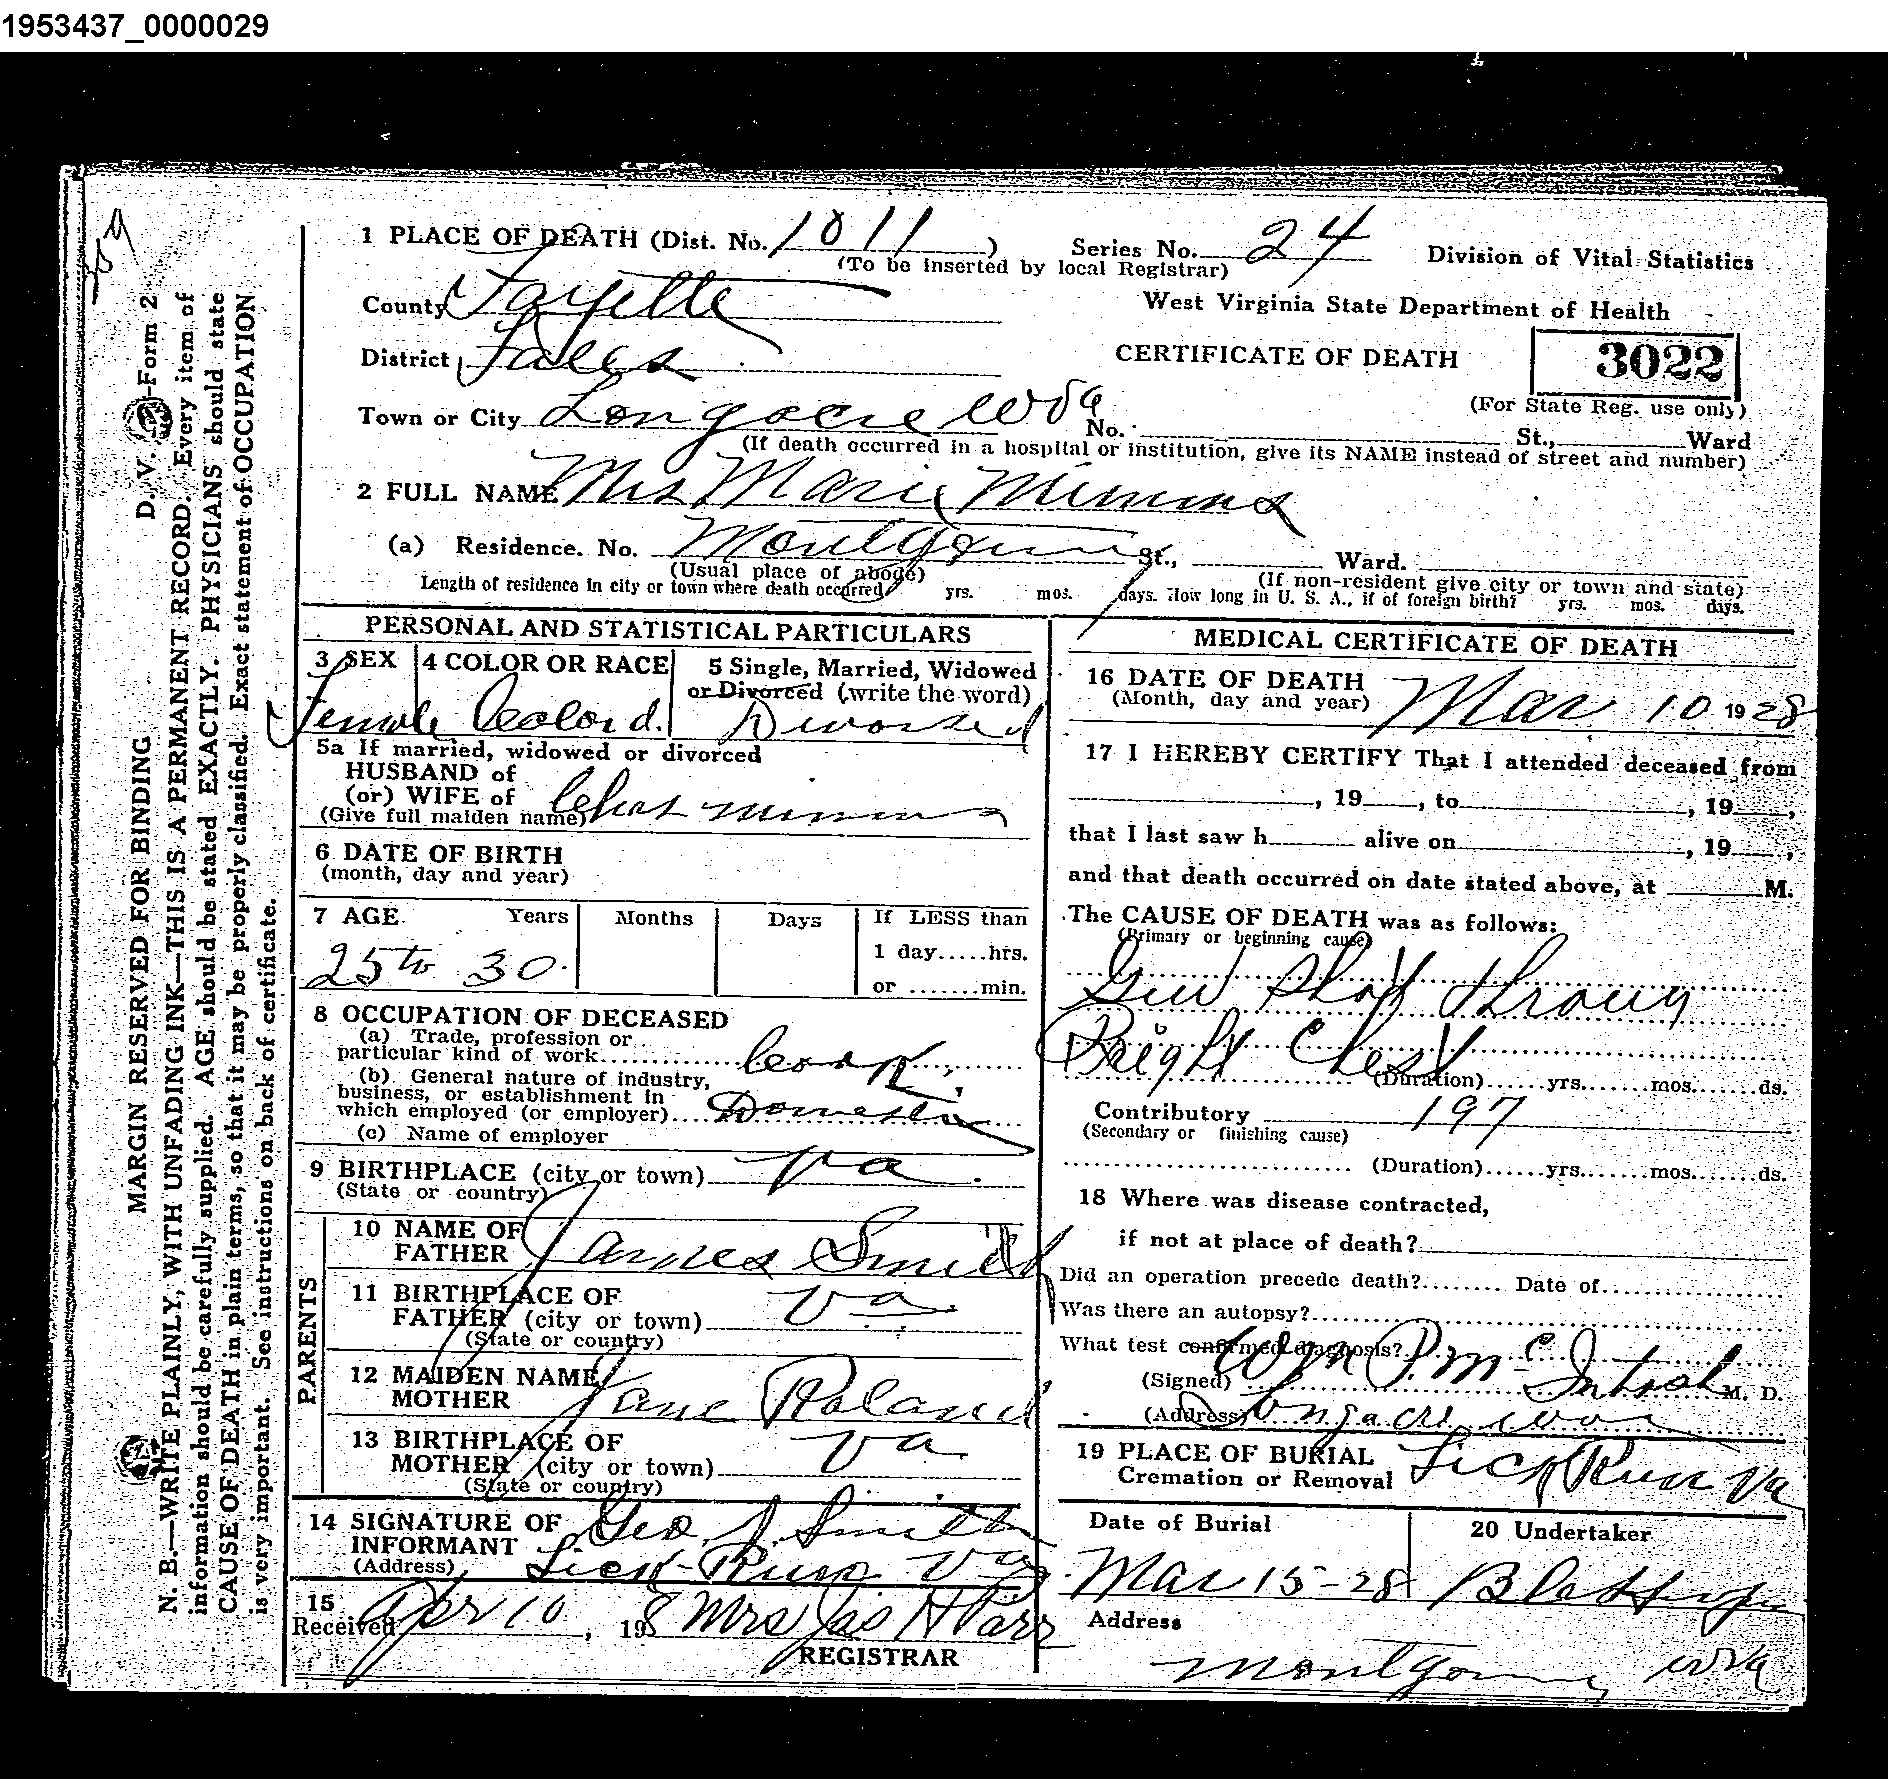 1953437_0000029
1 PLACE OF DEATH (Dist. No. 1011)
(To be inserted by local Registrar)
Series No. 24
Division of Vital Statistics
County Fayette
West Virginia State Department of Health
District Falls
CERTIFICATE OF DEATH
3022
(For State Reg. use only)
Town or City Longacre WVa No. St., Ward
(If death occurred in a hospital or institution, give its NAME instead of street and number)
2 FULL NAME Mrs Marie Mimms
(a) Residence. No. Montgomery St., Ward.
(Usual place of abode) (If non-resident give city or town and state)
Length of residence in city or town where death occurred yrs. mos. days. How long in U. S. A., if of foreign birth? yrs. mos. days.
PERSONAL AND STATISTICAL PARTICULARS
3 SEX 4 COLOR OR RACE 5 Single, Married, Widowed
or Divorced (write the word)
Female Colord. Divorsed
5a If married, widowed or divorced
HUSBAND of
(or) WIFE of Chas Mimms
(Give full maiden name)
6 DATE OF BIRTH
(month, day and year)
7 AGE Years Months Days If LESS than
1 day.....hrs.
25 to 30
or .......min.
8 OCCUPATION OF DECEASED
(a) Trade, profession or
particular kind of work Cook
(b) General nature of industry,
business, or establishment in
which employed (or employer) Domestic
(c) Name of employer
9 BIRTHPLACE (city or town) Va
(State or country)
PARENTS
10 NAME OF
FATHER James Smith
11 BIRTHPLACE OF
FATHER (city or town) Va
(State or country)
12 MAIDEN NAME
MOTHER Jane Roland
13 BIRTHPLACE OF
MOTHER (city or town) Va
(State or country)
14 SIGNATURE OF Geo J. Smith
INFORMANT
(Address) Lick-Run Va
15
Received Apr 10, 198 Mrs Jas H Parr
REGISTRAR
MEDICAL CERTIFICATE OF DEATH
16 DATE OF DEATH
(Month, day and year) Mar 10 1928
17 I HEREBY CERTIFY That I attended deceased from
, 19 , to , 19 ,
that I last saw h alive on , 19 ,
and that death occurred on date stated above, at M.
The CAUSE OF DEATH was as follows:
(Primary or beginning cause)
Gun Shot Throug
Reight Chest
(Duration)......yrs.......mos......ds.
Contributory 197
(Secondary or finishing cause)
(Duration)......yrs.......mos......ds.
18 Where was disease contracted,
if not at place of death?
Did an operation precede death?........ Date of
Was there an autopsy?
What test confirmed diagnosis?
(Signed) Wm P. McIntosh M. D.
(Address) Longacre wva
19 PLACE OF BURIAL
Cremation or Removal Lick Run Va
Date of Burial 20 Undertaker
Mar 15-28
Address
Montgomery WVa
D. V. S.—Form 2
MARGIN RESERVED FOR BINDING
N. B.—WRITE PLAINLY, WITH UNFADING INK—THIS IS A PERMANENT RECORD. Every item of
information should be carefully supplied. AGE should be stated EXACTLY. PHYSICIANS should state
CAUSE OF DEATH in plain terms, so that it may be properly classified. Exact statement of OCCUPATION
is very important. See instructions on back of certificate.